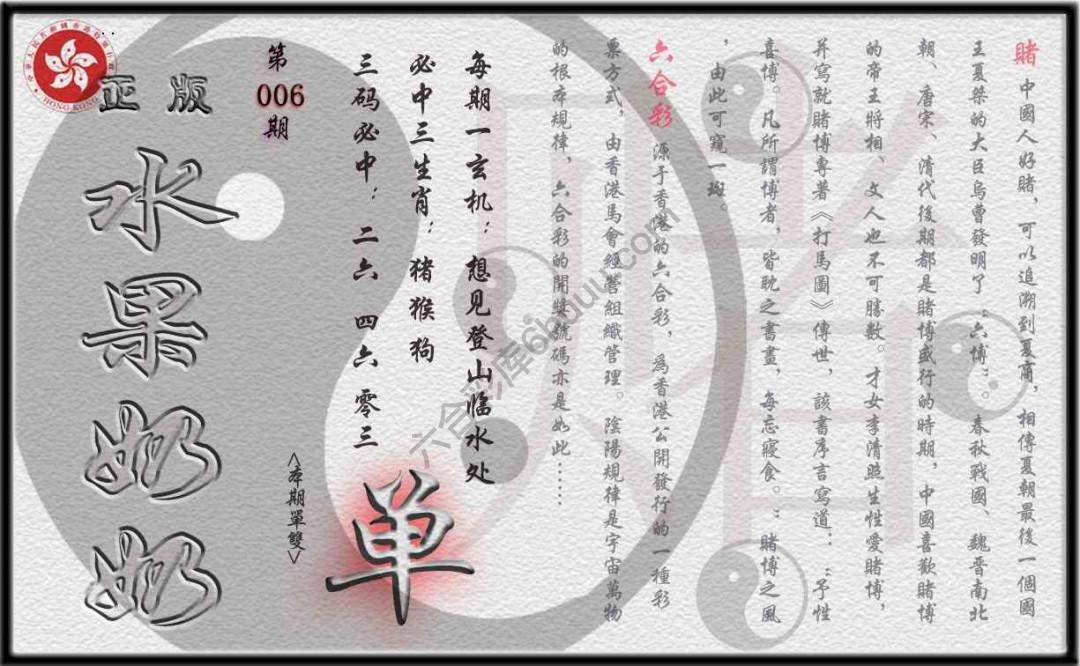 賭 中國人好賭，可以追溯到夏商，相傳夏朝最後一個國
王夏桀的大臣烏曹發明了“六博”。春秋戰國、魏晉南北
朝、唐宋、清代後期都是賭博盛行的時期，中國喜歡賭博
的帝王將相、文人也不可勝數。才女李清照生性愛賭博，
并寫就賭博專著《打馬圖》傳世，該書序言寫道：“予性
喜博。凡所謂博者，皆耽之書畫，每忘寢食。”賭博之風
，由此可窺一斑。
六合彩 源于香港的六合彩，為香港公開發行的一種彩
票方式，由香港馬會經營組織管理。陰陽規律是宇宙萬物
的根本規律，六合彩的開獎號碼亦是如此……
每期一玄机：想见登山临水处
必中三生肖：猪猴狗
三码必中：二六 四六 零三
单
<本期單雙>
第
006
期
正版
水果奶奶
HONG KONG
六合彩库